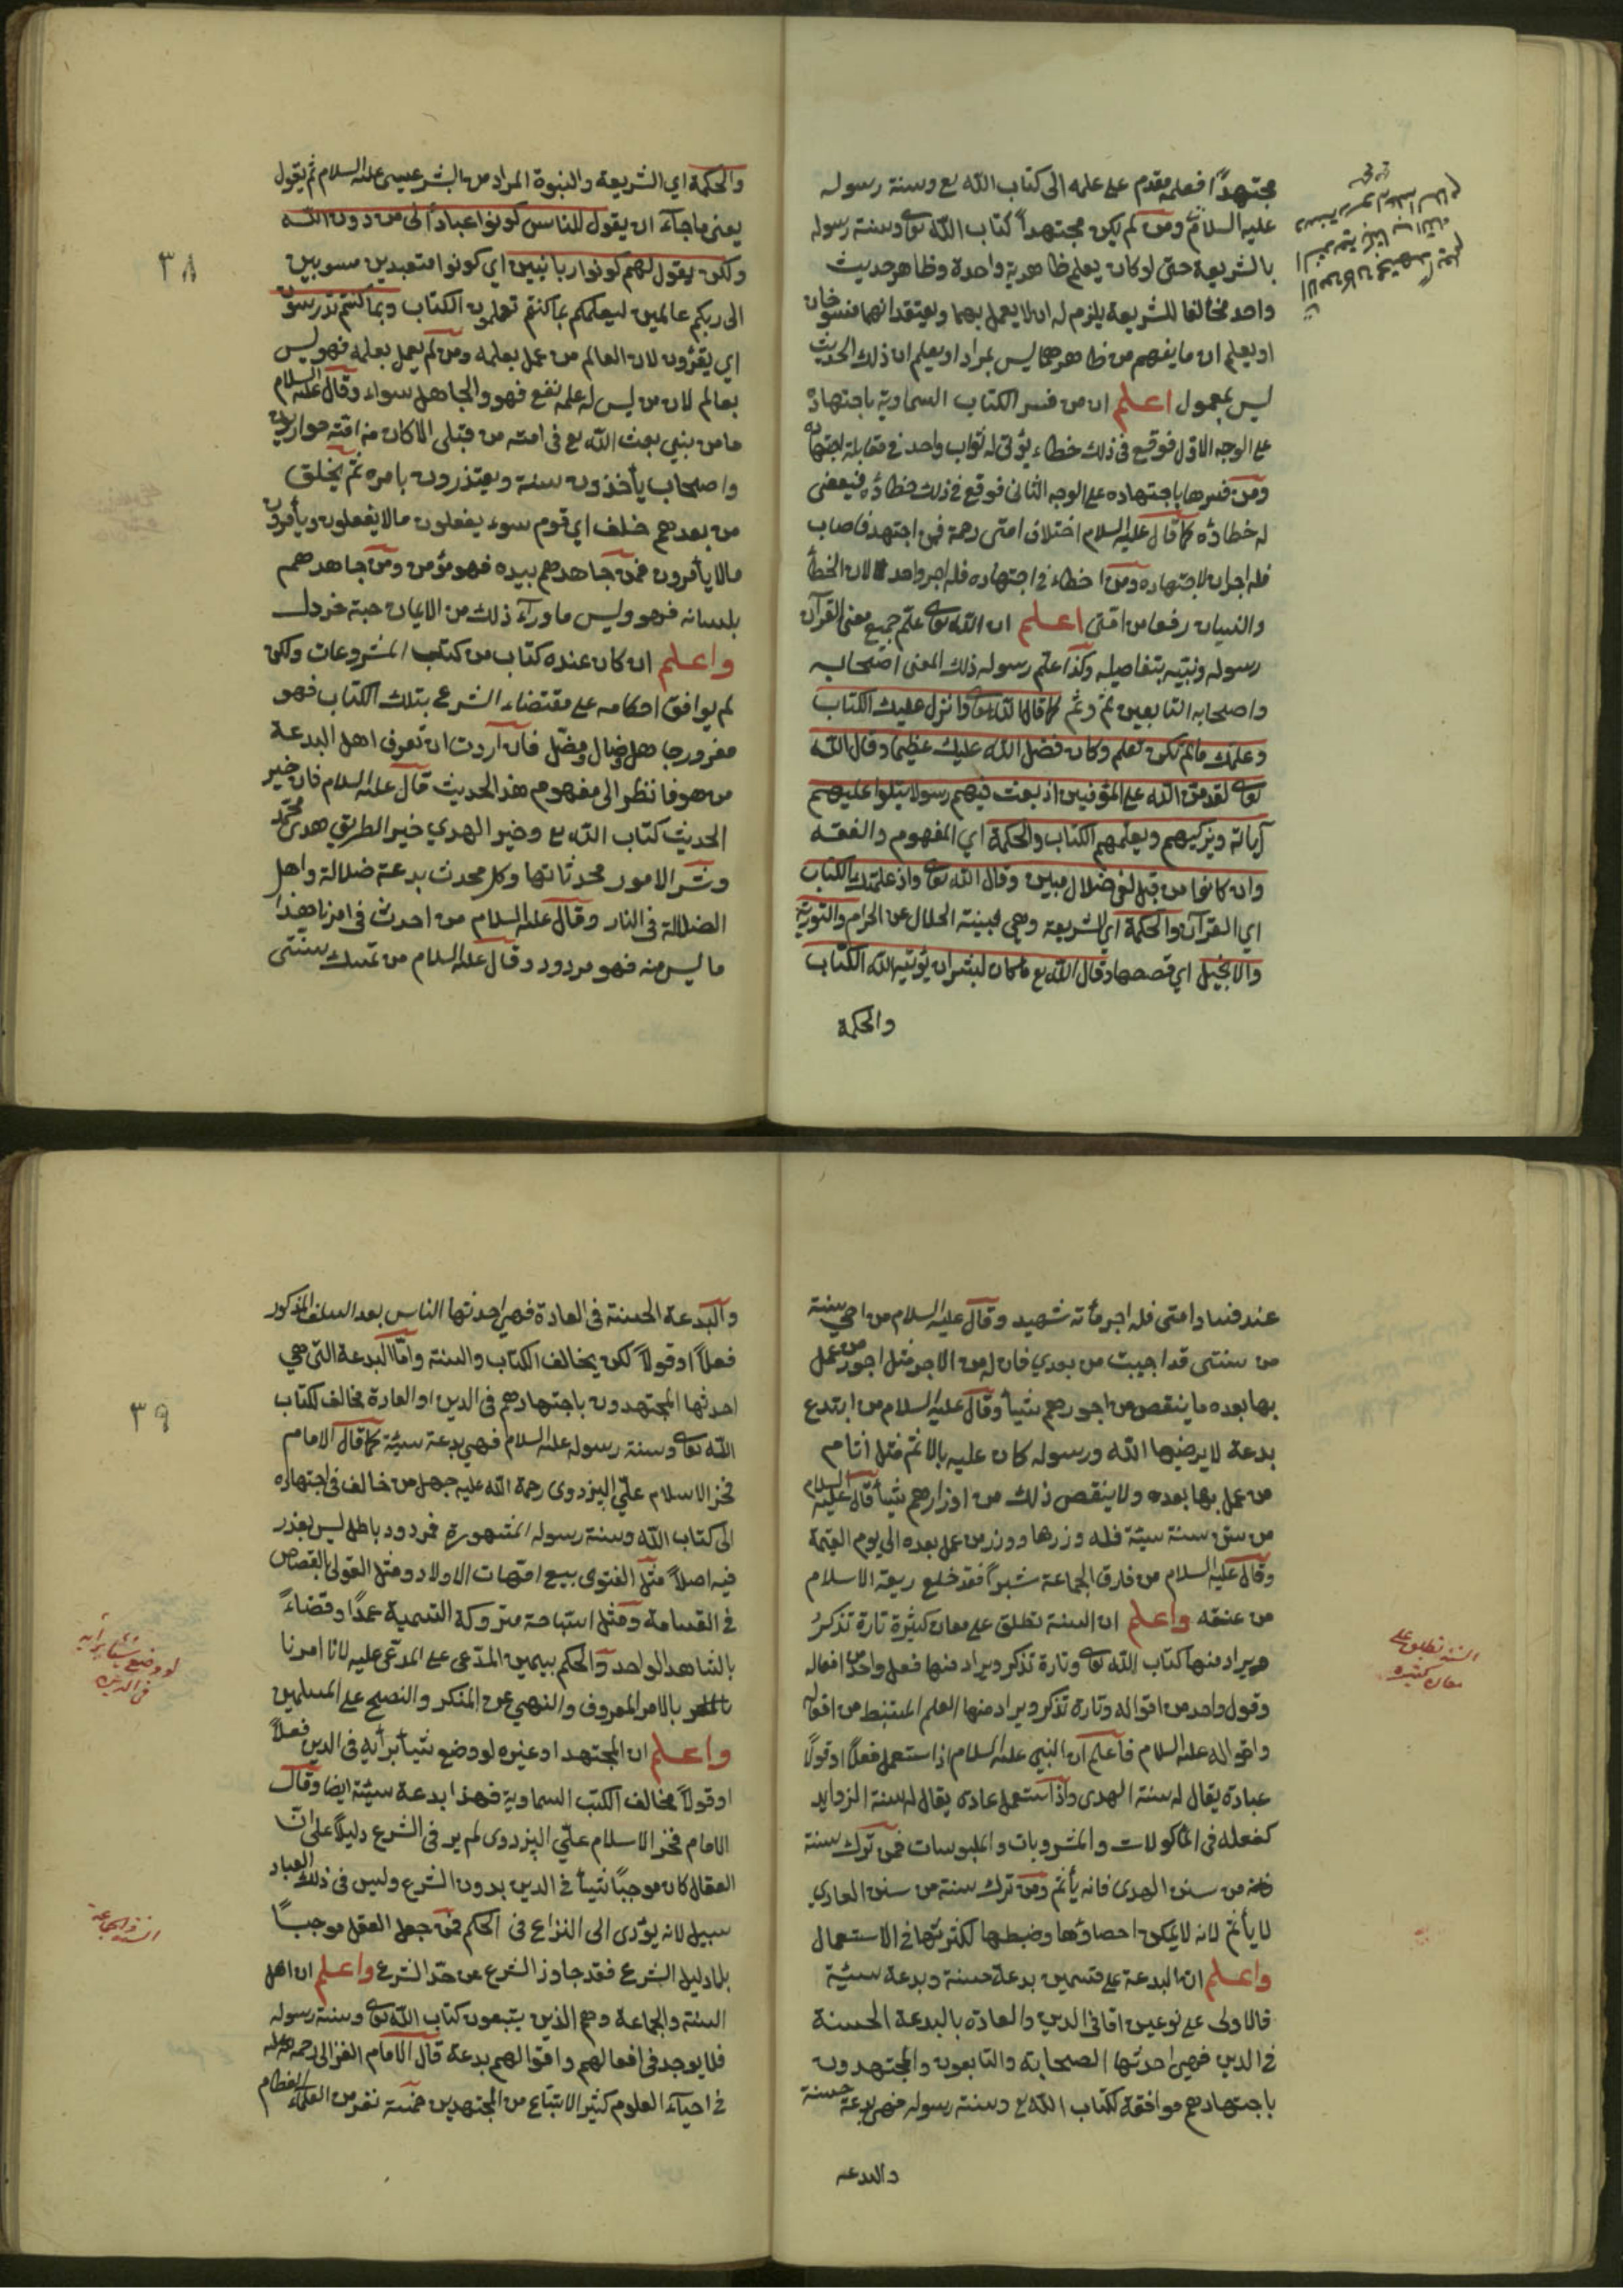 مجتهداً فعلمه مقدم على علمه الى كتاب الله تع وسنة رسوله
عليه السلام ومن لم يكن مجتهداً كتاب الله تعالى وسنة رسوله
بالشريعة حتى لو كان يعلم ظاهر آية واحدة وظاهر حديث
واحد مخالفا للشريعة يلزم له ان لا يعمل بهما ويعتقد انهما منسوخان
او يعلم ان ما يفهم من ظاهرهما ليس بمراد او يعلم ان ذلك الحديث
ليس بمعمول اعلم ان من فسر الكتاب السماوية باجتهاده
على الوجه الاول فوقع فى ذلك خطاء يؤتى له ثواب واحد في مقابلة اجتهاده
ومن فسرها باجتهاده على الوجه الثانى فوقع في ذلك خطاؤه فيعفى
له خطاؤه كما قال عليه السلام اختلاف امتى رحمة فمن اجتهد فاصاب
فله اجران لاجتهاده ومن اخطاء في اجتهاده فله اجر واحد لان الخطأ
والنسيان رفعا من امتى اعلم ان الله تعالى علم جميع معنى القرآن
رسوله ونبيه بتفاصيله وكذا علم رسوله ذلك المعنى اصحابه
واصحابه التابعين ثم وثم كما قال الله تعالى وانزل عليك الكتاب
وعلمك مالم تكن تعلم وكان فضل الله عليك عظيما وقال الله
تعالى لقد من الله على المؤمنين اذ بعث فيهم رسولا يتلوا عليهم
آياته ويزكيهم ويعلمهم الكتاب والحكمة اي المفهوم والفقه
وان كانوا من قبل لفى ضلال مبين وقال الله تعالى واذ علمتك الكتاب
اي القرآن والحكمة اي الشريعة وهي مبينة الحلال عن الحرام والتورية
والانجيل اي قصصها وقال الله تع ما كان لبشر ان يؤتيه الله الكتاب
والحكمة
والحكمة اي الشريعة والنبوة المراد من البشر عيسى عليه السلام ثم يقول
يعنى ما جاء ان يقول للناس كونوا عباداً لى من دون الله
ولكن يقول لهم كونوا ربانيين اي كونوا متعبدين مسوبين
الى ربكم عالمين ليعلمكم بما كنتم تعلمون الكتاب وبما كنتم تدرسون
اي يقرؤن لان العالم من عمل بعلمه ومن لم يعمل بعلمه فهو ليس
بعالم لان من ليس له علمه نفع فهو والجاهل سواء وقال عليه السلام
ما من نبي بعث الله تع فى امته من قبلى الا كان من امته حواريون
واصحاب يأخذون سنة ويعتذرون بامره ثم يخلق
من بعدهم خلف اي قوم سوء يفعلون مالا يفعلون ويأمرون
مالا يأمرون فمن جاهدهم بيده فهو مؤمن ومن جاهدهم
بلسانه فهو وليس ما ورآء ذلك من الايمان حبة خردل
واعلم ان كان عنده كتاب من كتب المشروعات ولكن
لم يوافق احكامه على مقتضاء الشرع بتلك الكتاب فهو
مغرور جاهل وضال ومضل فان اردت ان تعرف اهل البدعة
من هو فانظر الى مفهوم هذ الحديث قال عليه السلام فان خير
الحديث كتاب الله تع وخير الهدي خير الطريق هدى محمد
وشر الامور محدثاتها وكل محدث بدعة ضلالة واهل
الضلالة في النار وقال عليه السلام من احدث فى امرنا هذا
ما ليس منه فهو مردود وقال عليه السلام من تمسك بسنتى
٣٨
عند فساد امتى فله اجر مأته شهيد وقال عليه السلام من احيى سنة
من سنتى قد اجيبت من بعدي فان له من الاجر مثل اجور من عمل
بها بعده ما ينقص من اجورهم شيأ وقال عليه السلام من ابتدع
بدعة لا يرضيها الله ورسوله كان عليه بالاثم مثل اثام
من عمل بها بعده ولا ينقص ذلك من اوزارهم شيأ قال عليه السلام
من سن سنة سيئة فله وزرها ووزر من عمل بعده الى يوم القيمة
وقال عليه السلام من فارق الجماعة شبراً فقد خلع ربعة الاسلام
من عنقه واعلم ان السنة تطلق على معان كثيرة تارة تذكر
ويراد منها كتاب الله تعالى وتارة تذكر ويراد منها فعل واحد من افعاله
وقول واحد من اقواله وتارة تذكر ويراد منها العلم المستنبط من افعاله
واقواله عليه السلام فاعلم ان النبي عليه السلام اذا استعمل فعلاً او قولاً
عبادة يقال له سنة الهدى واذا استعمل عادى يقال له سنة الزوايد
كفعله فى المأكولات والمشروبات والملبوسات فمن ترك سنة
من سنن الهدى فانه يأثم ومن ترك سنة من سنن العادي
لا يأثم لانه لا يمكن احصاؤها وضبطها لكثرتها في الاستعمال
واعلم ان البدعة على قسمين بدعة حسنة وبدعة سيئة
فالاولى على نوعين اما فى الدين والعادة بالبدعة الحسنة
في الدين فهي احدثها الصحابة والتابعون والمجتهدون
باجتهادهم موافقة لكتاب الله تع وسنة رسوله فهي بدعة حسنة
والبدعة
السنة تطلق على
معان كثيره
والبدعة الحسنة فى العادة فهي احدثها الناس بعد السلف المذكور
فعلاً او قولاً لكن يخالف الكتاب والسنة واما البدعة التى هي
احدثها المجتهدون باجتهادهم فى الدين او العادة مخالف لكتاب
الله تعالى وسنة رسوله عليه السلام فهي بدعة سيئة كما قال الامام
فخر الاسلام على البزدوى رحمة الله عليه جهل من خالف فى اجتهاده
الى كتاب الله وسنة رسوله المشهورة فمردود باطل ليس بعذر
فيه اصلاً مثل الفتوى ببيع امهات الاولاد ومثل القول بالقصاص
في القسامة ومثل استباحة متروكة التسمية عمداً وقضاءً
بالشاهد الواحد والحكم بيمين المدعى على المدعى عليه لانا امرنا
بالامر المعروف والنهى عن المنكر والنصح على المسلمين
واعلم ان المجتهد او غيره لو وضع شيأ برأيه فى الدين فعلاً
او قولاً مخالف الكتب السماوية فهذا بدعة سيئة ايضا وقال
الامام فخر الاسلام على البزدوى لم ير فى الشرع دليلاً على ان
العقال كان موجباً شيأ في الدين بدون الشرع وليس فى ذلك العباد
سبيل لانه يؤدى الى النزاع فى الحكم فمن جعل العقل موجباً
بلا دليل الشرع فقد جاوز الشرع عن حد الشرع واعلم ان اهل
السنة والجماعة وهم الذين يتبعون كتاب الله تعالى وسنة رسوله
فلا يوجد فى افعالهم واقوالهم بدعة قال الامام الغزالى رحمه الله
في احياء العلوم كثير الاتباع من المجتهدين خمسة نفر من العلماء العظام
٣٩
لو وضع شيأ برأيه
فى الدين
السنة والجماعة